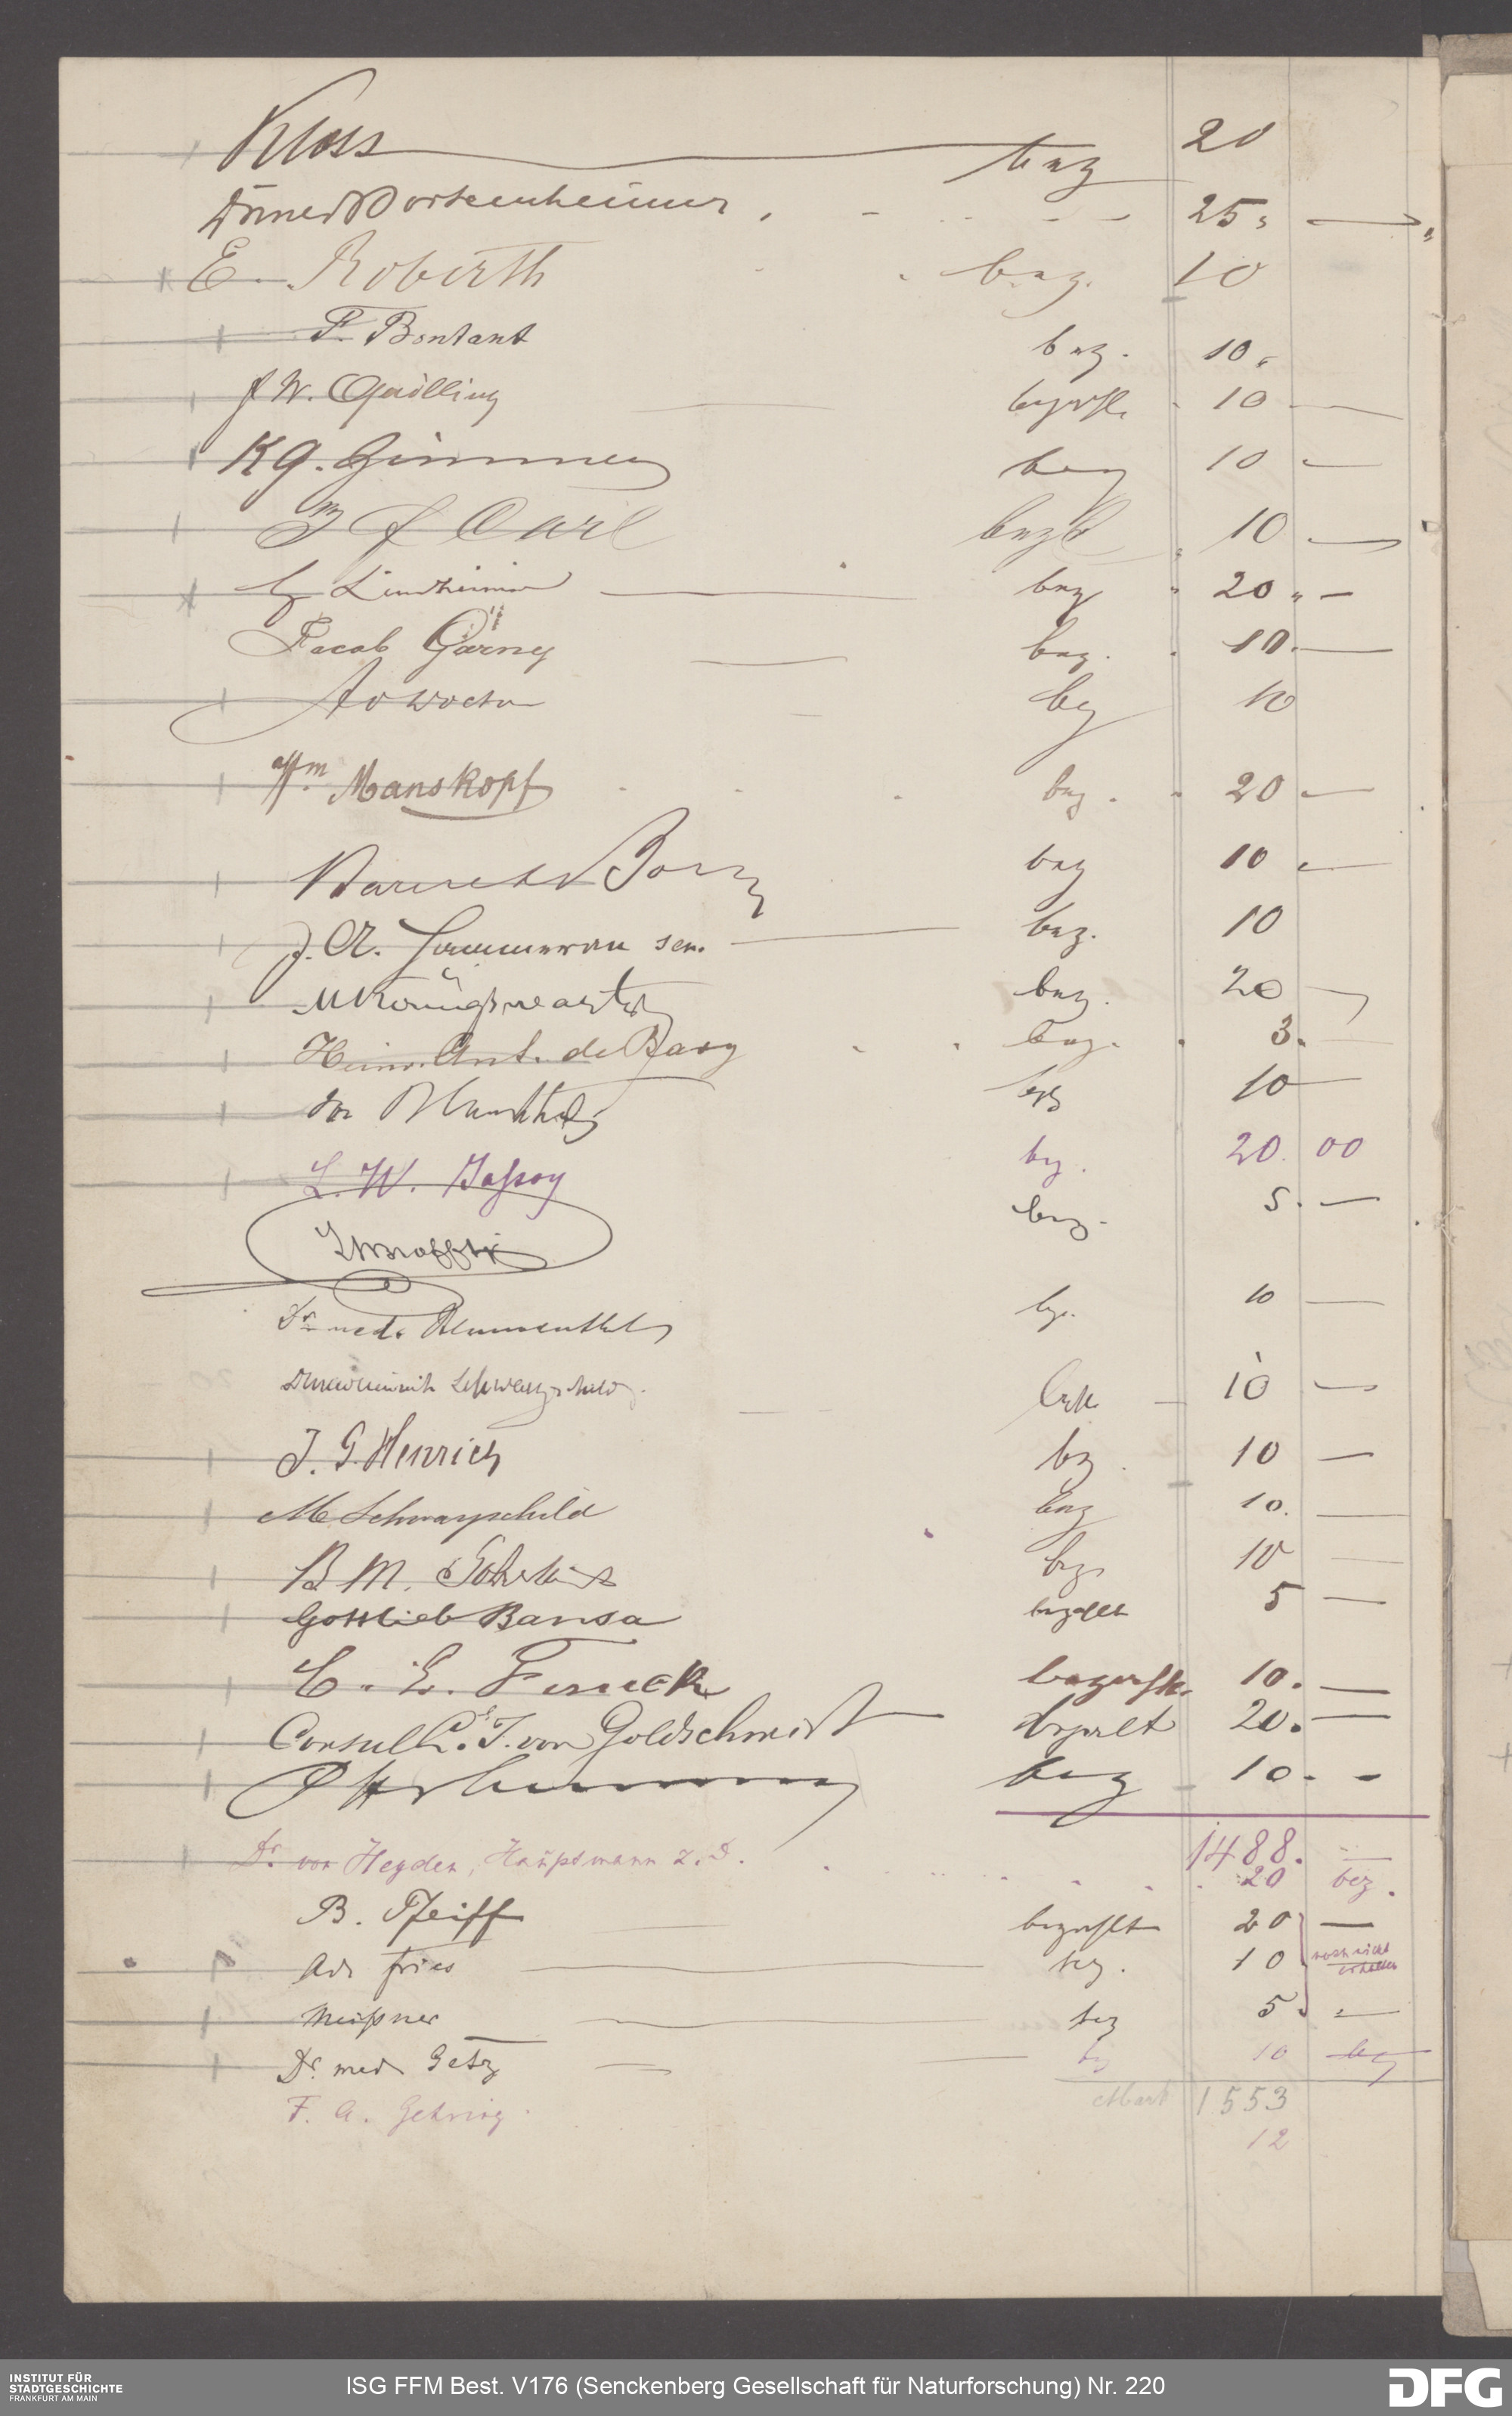 Kloss bez 20
25
E. Roberth bez. 10
F. Bontant bez. 10
J W. Quilling bezahlt 10
K G. Zimmer bez 10
J F Carl bezlt 10
Lindheimer bez 20
Jacob Göring bez. 10
bez 10
Manskopf bez. 20
bez 10
J. A. Hammeran sen. bez. 10
M Königswarter bez. 20
Heinr. Ant. de Bary bez. 3.
bez 10
L. W. Jassoy bz. 20. 00
bez. 5.
Dr. med. Blumenthal bez. 10
Schwarzschild bez. 10
J. G. Henrich bz. 10
M Schwarzschild bez 10.
B. M. bez 10
Gottlieb Bansa bezahlt 5
C. E. Finck bezahlt. 10.
Consul von Goldschmidt bezalt 20.
bez 10.
1488.
Dr. von Heyden, Hauptmann z. D. 20 bez.
B. Pfeiff bezahlt 20
Ad. Fries bez. 10 noch nicht erhalten
Meißner bez 5
Dr. med. Getz bz 10 bez
Mark 1553
F. A. Gehring 12
INSTITUT FÜR
STADTGESCHICHTE
FRANKFURT AM MAIN
ISG FFM Best. V176 (Senckenberg Gesellschaft für Naturforschung) Nr. 220
DFG